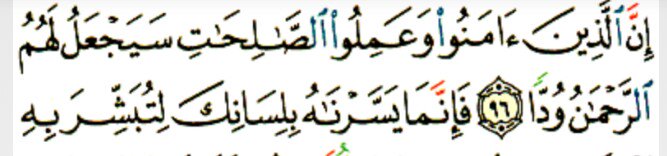 إِنَّ ٱلَّذِينَ ءَامَنُوا۟ وَعَمِلُوا۟ ٱلصَّـٰلِحَـٰتِ سَيَجْعَلُ لَهُمُ
ٱلرَّحْمَـٰنُ وُدًّا ٩٦ فَإِنَّمَا يَسَّرْنَـٰهُ بِلِسَانِكَ لِتُبَشِّرَ بِهِ